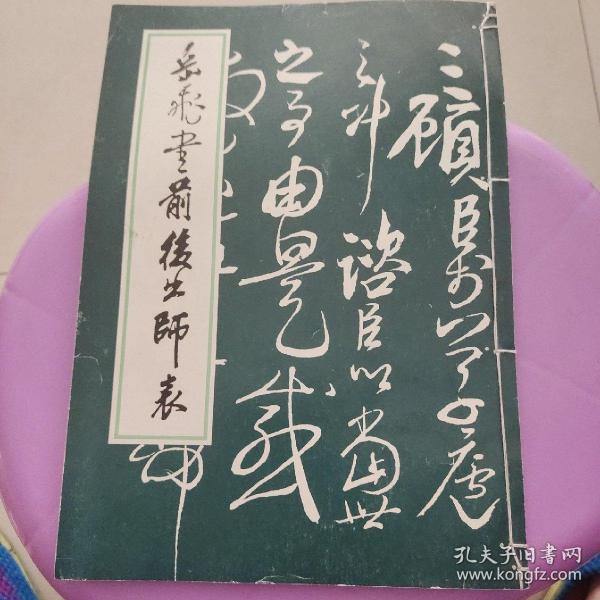 岳飛書前後出師表
三顧臣於草廬
之中諮臣以當世
之事由是感
孔夫子旧书网
www.kongfz.com